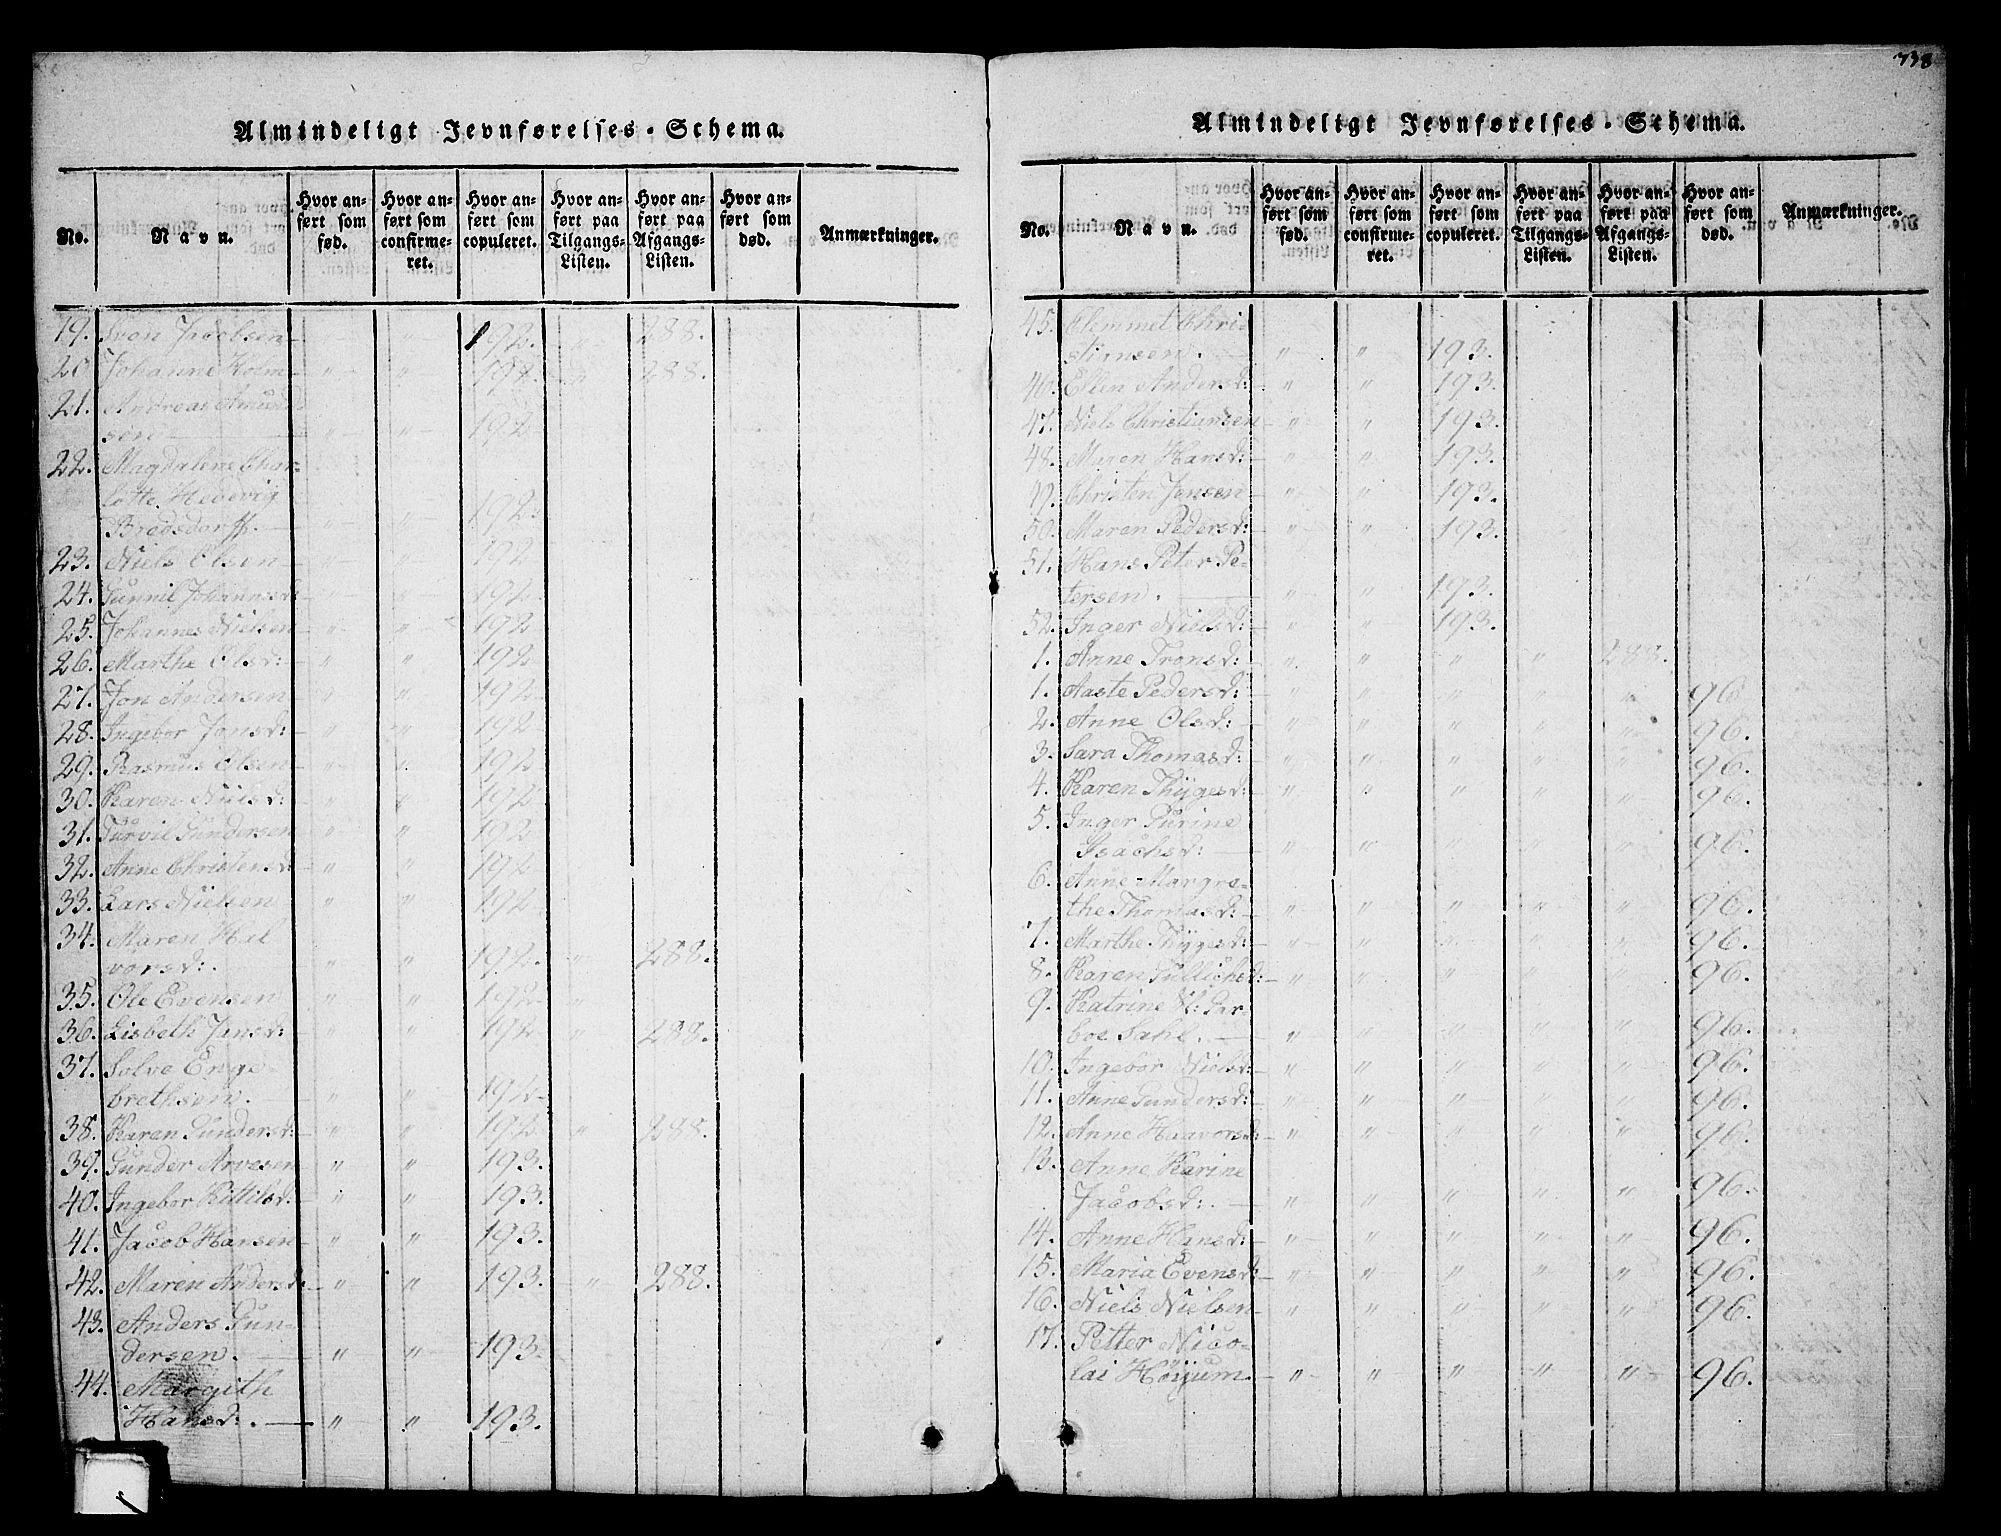 Almindeligt Jevnførelses-Schema.
No. Navn. Hvor anført som fød. Hvor anført som confirmeret. Hvor anført som copuleret. Hvor anført paa Tilgangs-Listen. Hvor anført paa Afgangs-Listen. Hvor anført som død. Anmærkninger.
19. Iven Jacobsen — " — " 192. " 288.
20 Johanne Holm — " — " 192. " 288.
21. Andreas Amund
sen — " — " 192
22. Magdalene Char-
lotte Hedevig
Bredsdorff. — " — " 192.
23. Niels Olsen — " — " 192
24. Gunnil Johannesd: " — " 192.
25. Johannes Nielsen — " — " 192
26. Marthe Olsd: — " — " 192
27. Jon Andersen — " — " 192
28. Ingebor Jonsd: — " — " 192
29. Rasmus Olsen — " — " 192
30. Karen Nielsd: " — " 192
31. Torvil Gundersen " — " 192
32. Anne Christensd: " — " 192
33. Lars Nielsen " — " 192
34. Maren Hal
vorsd: . " — " 192. " 288.
35. Ole Evensen " — " 192 "
36. Lisbeth Jansd: " — " 192 " 288.
37. Solve Enge-
brethsen. — " — " 192
38. Karen Gundersd: " — " 192 " 288.
39. Gunder Arvesen " — " 193.
40. Ingebor Kittilsd: " — " 193.
41. Jacob Hansen — " — " 193.
42. Maren Andersd: " — " 193. " 288.
43. Anders Gun-
dersen. — " — " 193.
44. Margith
Hansd: . — " — " 193.
738
Almindeligt Jevnførelses-Schema.
No. Navn. Hvor anført som fød. Hvor anført som confirmeret. Hvor anført som copuleret. Hvor anført paa Tilgangs-Listen. Hvor anført paa Afgangs-Listen. Hvor anført som død. Anmærkninger.
45. Clemmet Chri-
stiansen. — " — " 193.
46. Ellen Andersd: " — " 193.
47. Niels Christiansen " — " 193.
48. Maren Hansd: — " — " 193.
49. Christen Jensen — " — " 193.
50. Maren Pedersd: " — " 193.
51. Hans Peter Pe-
tersen. — " — " 193.
52. Inger Nielsd: — " — " 193.
1. Anne Tronsd: — " — " " " 288.
1. Aaste Pedersd: — " — " " " " 96
2. Anne Olsd: — " — " " " " 96.
3. Sara Thomasd: " — " " " " 96.
4. Karen Thygesd: " — " " " " 96.
5. Inger Gurine
Isachsd: — " — " " " " 96.
6. Anne Margre-
the Thomasd: — " — " " " " 96.
7. Marthe Thygesd: " — " " " " 96.
8. Karen Gullichsd: " — " " " " 96.
9. Katrine N: Par
boe Sahl. — " — " " " " 96.
10. Ingebor Nielsd: " — " " " " 96.
11. Anne Gundersd: — " — " " " " 96.
12. Anne Haavorsd: — " — " " " " 96.
13. Anne Karine
Jacobsd: . " — " " " " 96.
14. Anne Hansd: — " — " " " " 96.
15. Maria Evensd: — " — " " " " 96.
16. Niels Nielsen — " — " " " " 96.
17. Petter Nico-
lai Höyum. — " — " " " " 96.